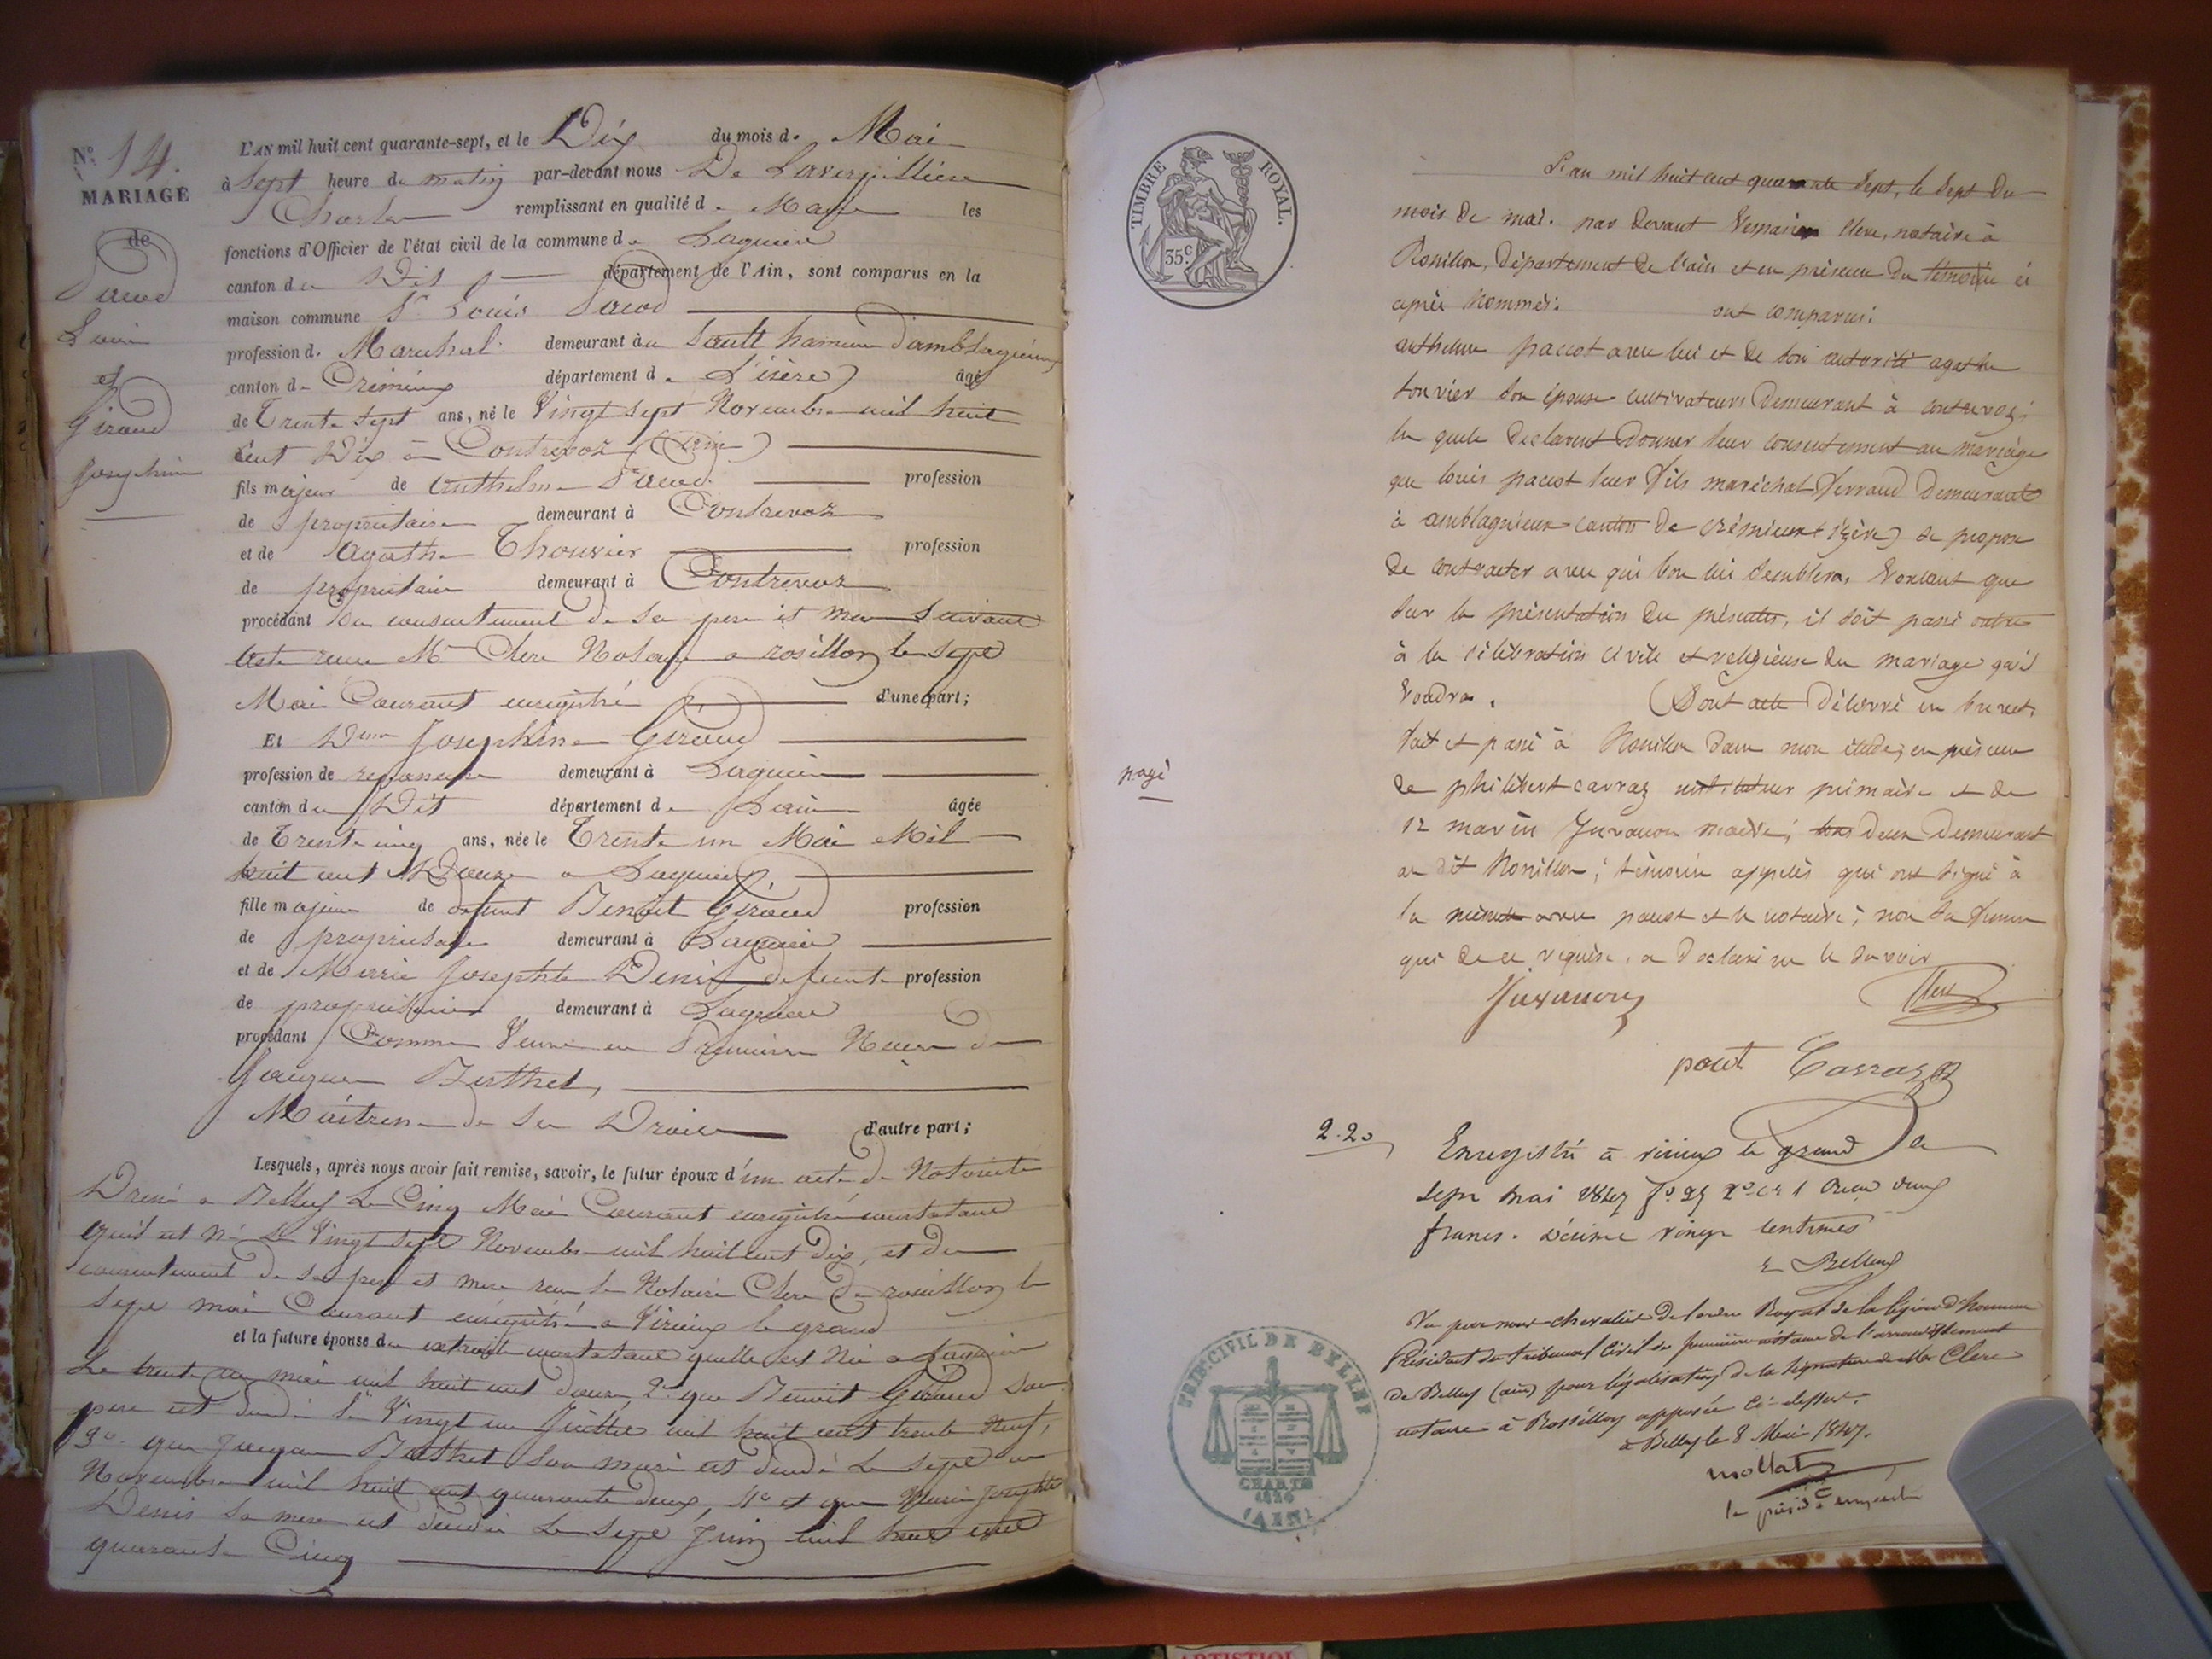 N.° 14.
MARIAGE
de
Pacod
Louis
et
Giraud
Josephine
L'AN mil huit cent quarante-sept, et le Dix du mois de Mai
à Sept heure du matin par-devant nous De Lavergillière
Charles remplissant en qualité de Maire les
fonctions d'Officier de l'état civil de la commune de Lagnieu
canton du Dit département de l'Ain, sont comparus en la
maison commune Sr Louis Pacod
profession de Maréchal demeurant au Sault hameau d'amblagnieux
canton de Crémieux département de L'isère) âgé
de Trente Sept ans, né le Vingt sept Novembre mil huit
Cent Dix à Contrevoz (Ain)
fils majeur de Anthelme Pacod profession
de propriétaire demeurant à Contrevoz
et de Agathe Thouvier profession
de propriétaire demeurant à Contrevoz
procédant du consentement de ses pere et mere Suivant
acte recu Me Clerc Notaire a rosillon le sept
Mai Courant enregistré d'une part;
Et Dame Josephine Giraud
profession de demeurant à Lagnieu
canton du Dit département de L'ain âgée
de Trente cinq ans, née le Trente un Mai Mil
huit cent Douze a Lagnieu
fille majeure de defunt Benoit Giraud profession
de propriétaire demeurant à Lagnieu
et de Marie Josephte Denis defunte profession
de propriétaire demeurant à Lagnieu
procédant Comme Veuve en Premiere Noces de
Jacques Berthet,
Maitresse de Ses Droits d'autre part;
Lesquels, après nous avoir fait remise, savoir, le futur époux d'un acte de Notorieté
Dressé a Belley Le Cinq Mai Courant enregistré constatant
qu'il est né Le Vingt sept Novembre mil huit cent Dix, et du
consentement de ses pere et mere recu le Notaire Clerc de rossillon le
Sept mai Courant enregistré a Virieux le grand
et la future épouse d'un extrait constatant quelle est Née a Lagnieu
Le trente un mai mil huit cent douze, 2° que Benoit Giraud Son
pere est decedé le Vingt un Juillet mil huit cent trente Neuf,
3° que Jacques Berthet Son mari est decedé Le Sept
Novembre mil huit cent quarante deux, 4° et que Marie Josephte
Denis sa mere est decedée Le Sept Juin mil huit cent
quarante Cinq
TIMBRE ROYAL.
35c
L'an mil huit cent quarante sept, le sept du
mois de mai. par devant Clerc, notaire à
Rossillon, département de l'ain et en présence des témoins ci
après nommés: ont comparus:
anthelme paccot avec lui et de son autorité agathe
touvier son épouse cultivateurs demeurant à contrevoz;
les quels déclarent donner leur consentement au mariage
que louis paccot leur fils maréchal ferrand demeurant
à amblagnieux canton de crémieux (isère) se propose
de contracter avec qui bon lui semblera, voulant que
sur la présentation des présentes, il soit passé outre
à la célébration civile et religieuse du mariage qu'il
voudra. Dont acte délivré en brevet.
fait et passé à Rossillon dans mon étude, en présence
de philibert carraz instituteur primaire et de
Sr marin Juvanon maire, tous deux demeurant
au dit Rossillon; témoins appelés qui ont signé à
la minute avec paccot et le notaire; non sa femme
qui de ce requise, a déclaré ne le savoir
page
Juvanon Clerc
pacot Carraz
2.20
Enregistré à virieux le grand le
sept mai 1847 f° 25 v° c 1 Recu deux
francs. décime vingt centimes
Vu par nous chevalier de l'ordre Royal de la légion d'honneur
Président du tribunal Civil de première instance de l'arrondissement
de Belley (ain) pour légalisation de la Signature de Me Clerc
notaire à Rossillon apposée ci-dessus.
à Belley le 8 Mai 1847.
mollat
TRIB. CIVIL DE BELLEY
CHARTE
(AIN)